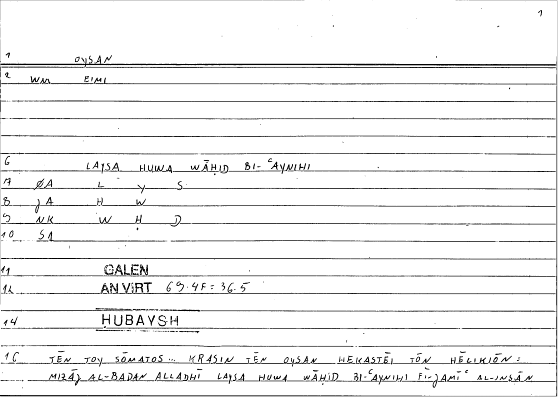 1
1 OYSAN
2 WM EIMI
6 LAYSA HUWA WĀḤID BI-ʿAYNIHI
7 ØA L Y S
8 JA H W
9 NK W H D
10 SA
11 GALEN
12 AN VIRT 69.4F = 36.5
14 HUBAYSH
16 TĒN TOY SŌMATOS... KRASIN TĒN OYSAN HEKASTĒI TŌN HĒLIKIŌN:
MIZĀJ AL-BADAN ALLADHĪ LAYSA HUWA WĀḤID BI-ʿAYNIHI FĪ-JAMĪʿ AL-INSĀN